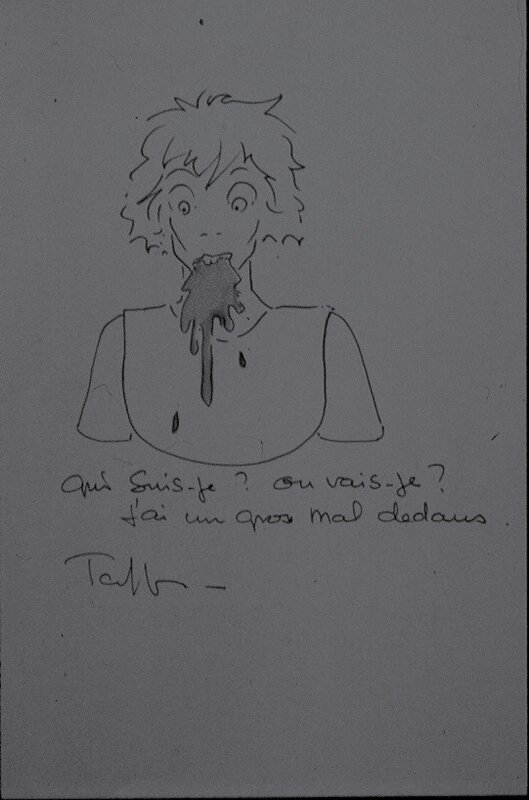 qui suis-je ? ou vais-je ?
j'ai un gros mal dedans.